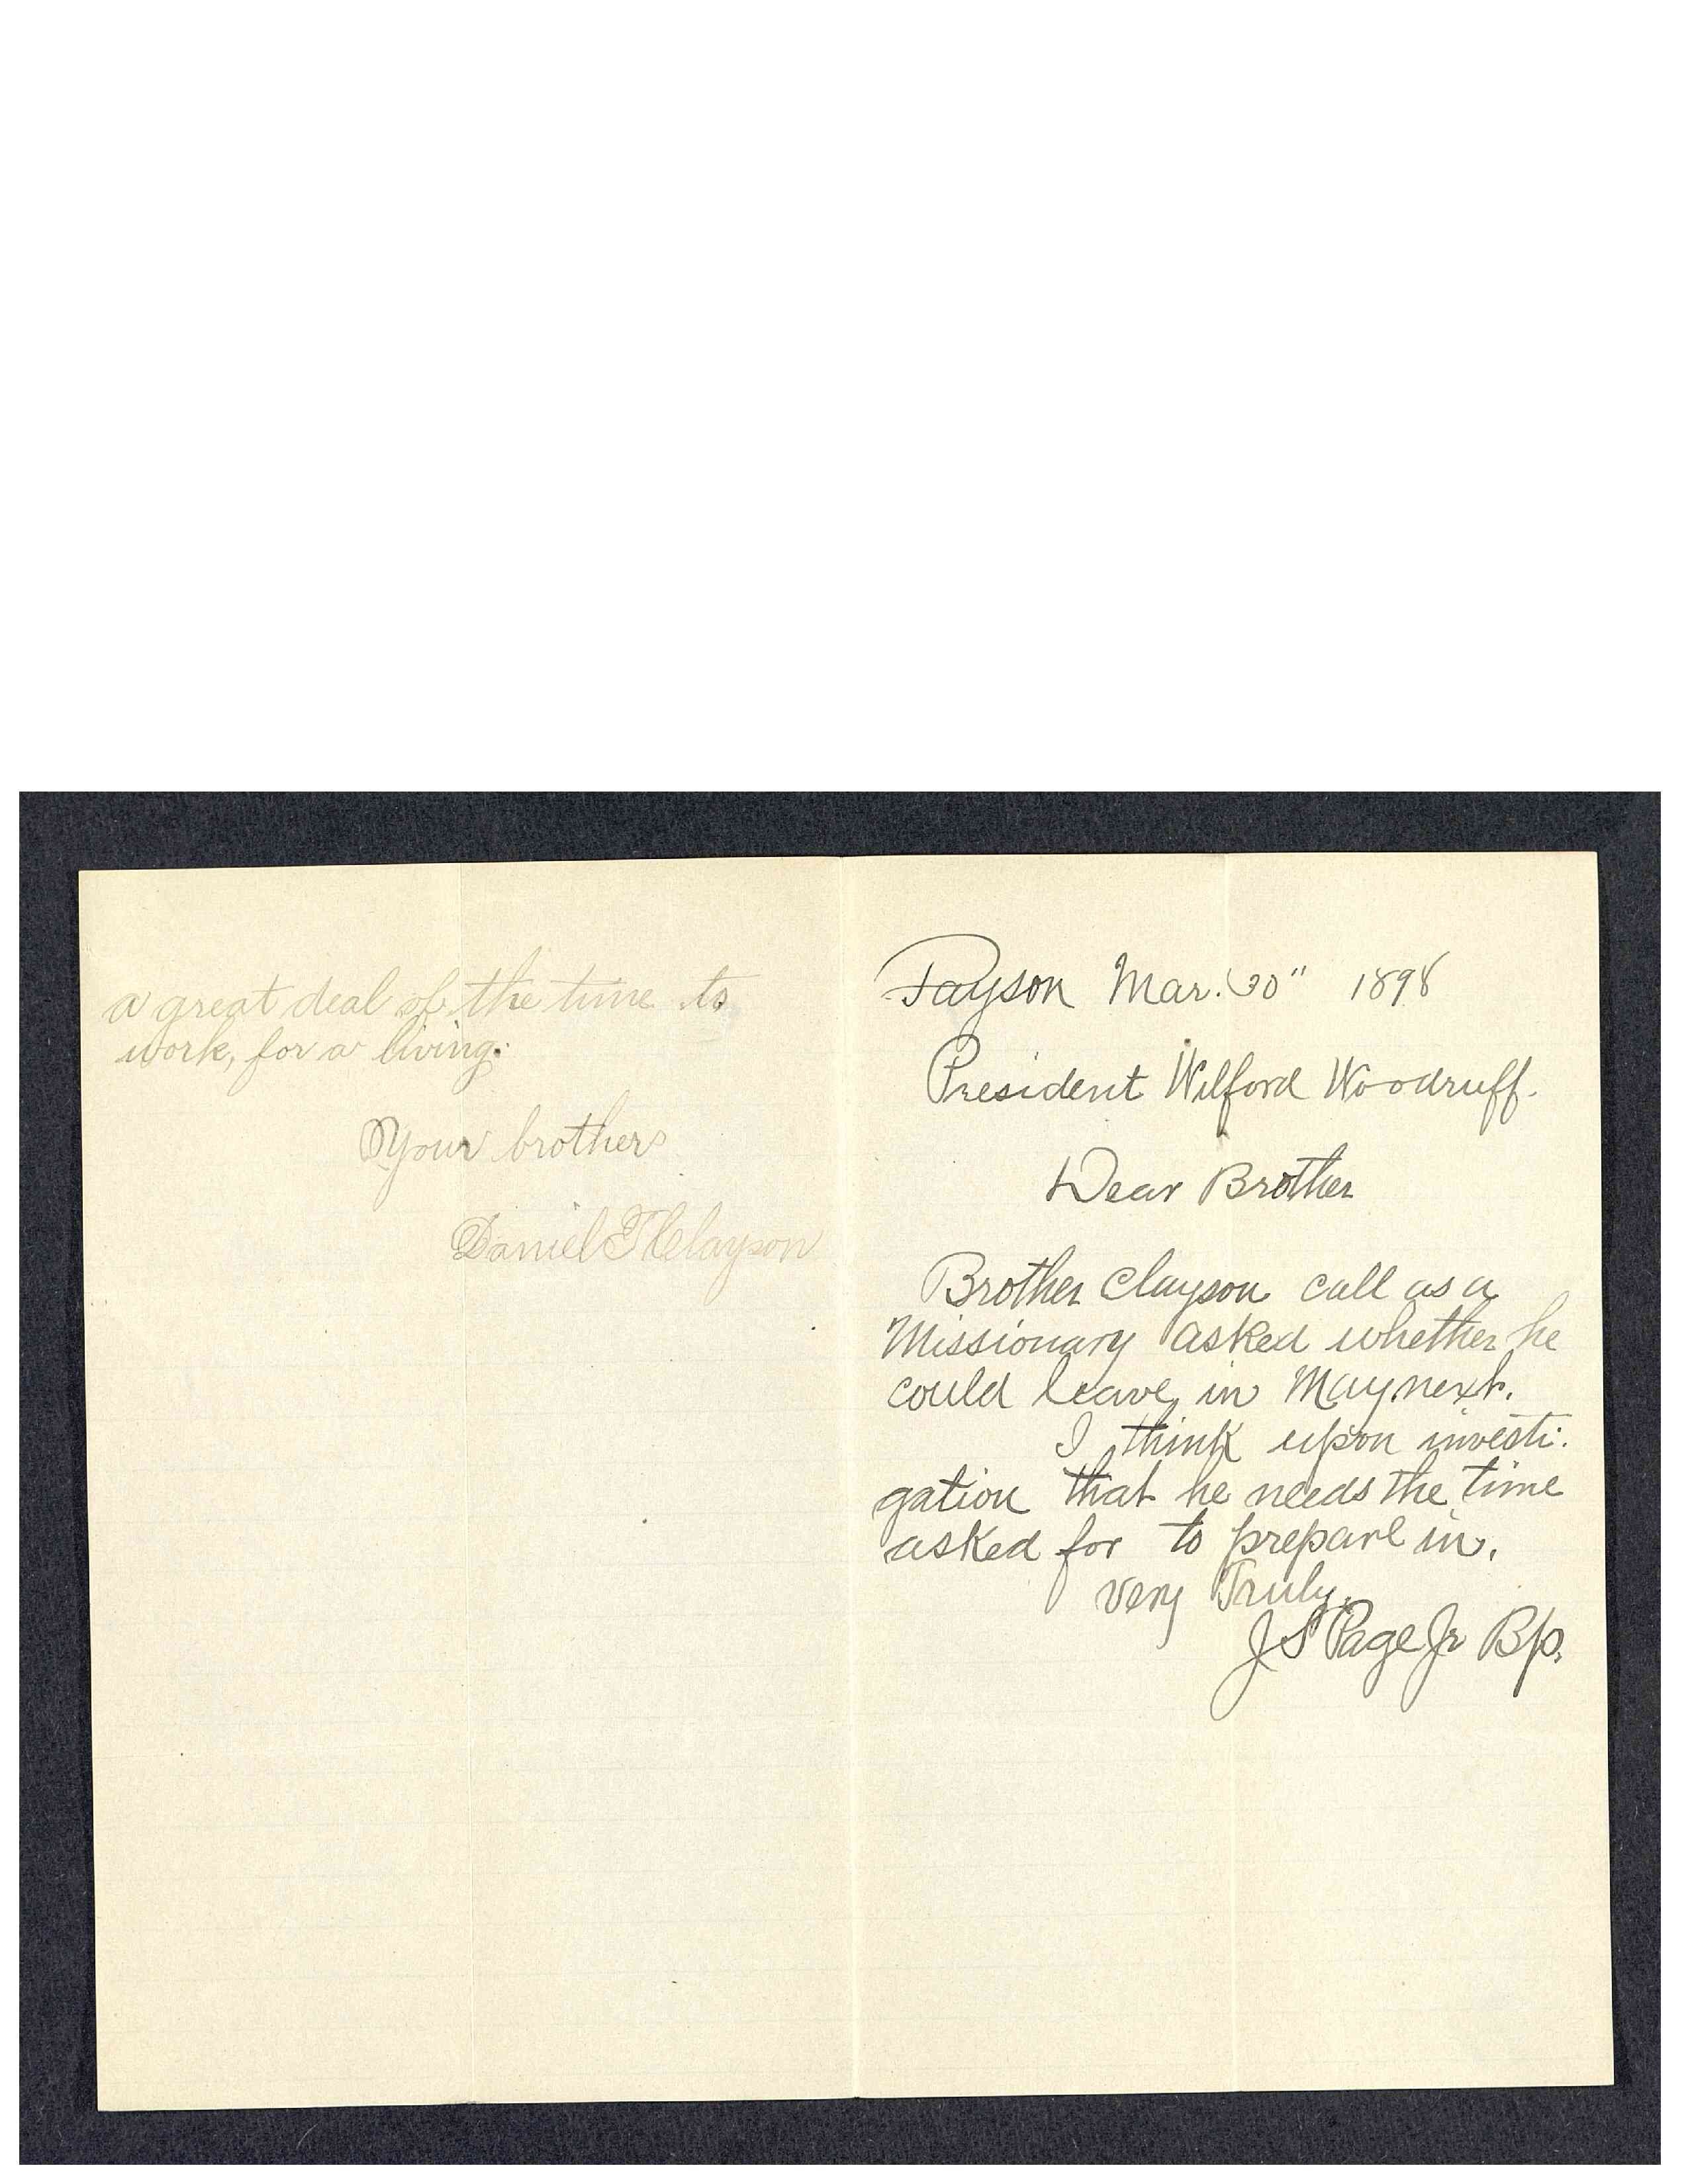 a great deal of the time to
work, for a living.
Your brother
Daniel T Clayson
Payson Mar. 30" 1898
President Wilford Woodruff.
Dear Brother
Brother Clayson call as a
Missionary asked whether he
could leave in May next.
I think upon investi-
gation that he needs the time
asked for to prepare in.
Very Truly,
J S Page Jr Bp.